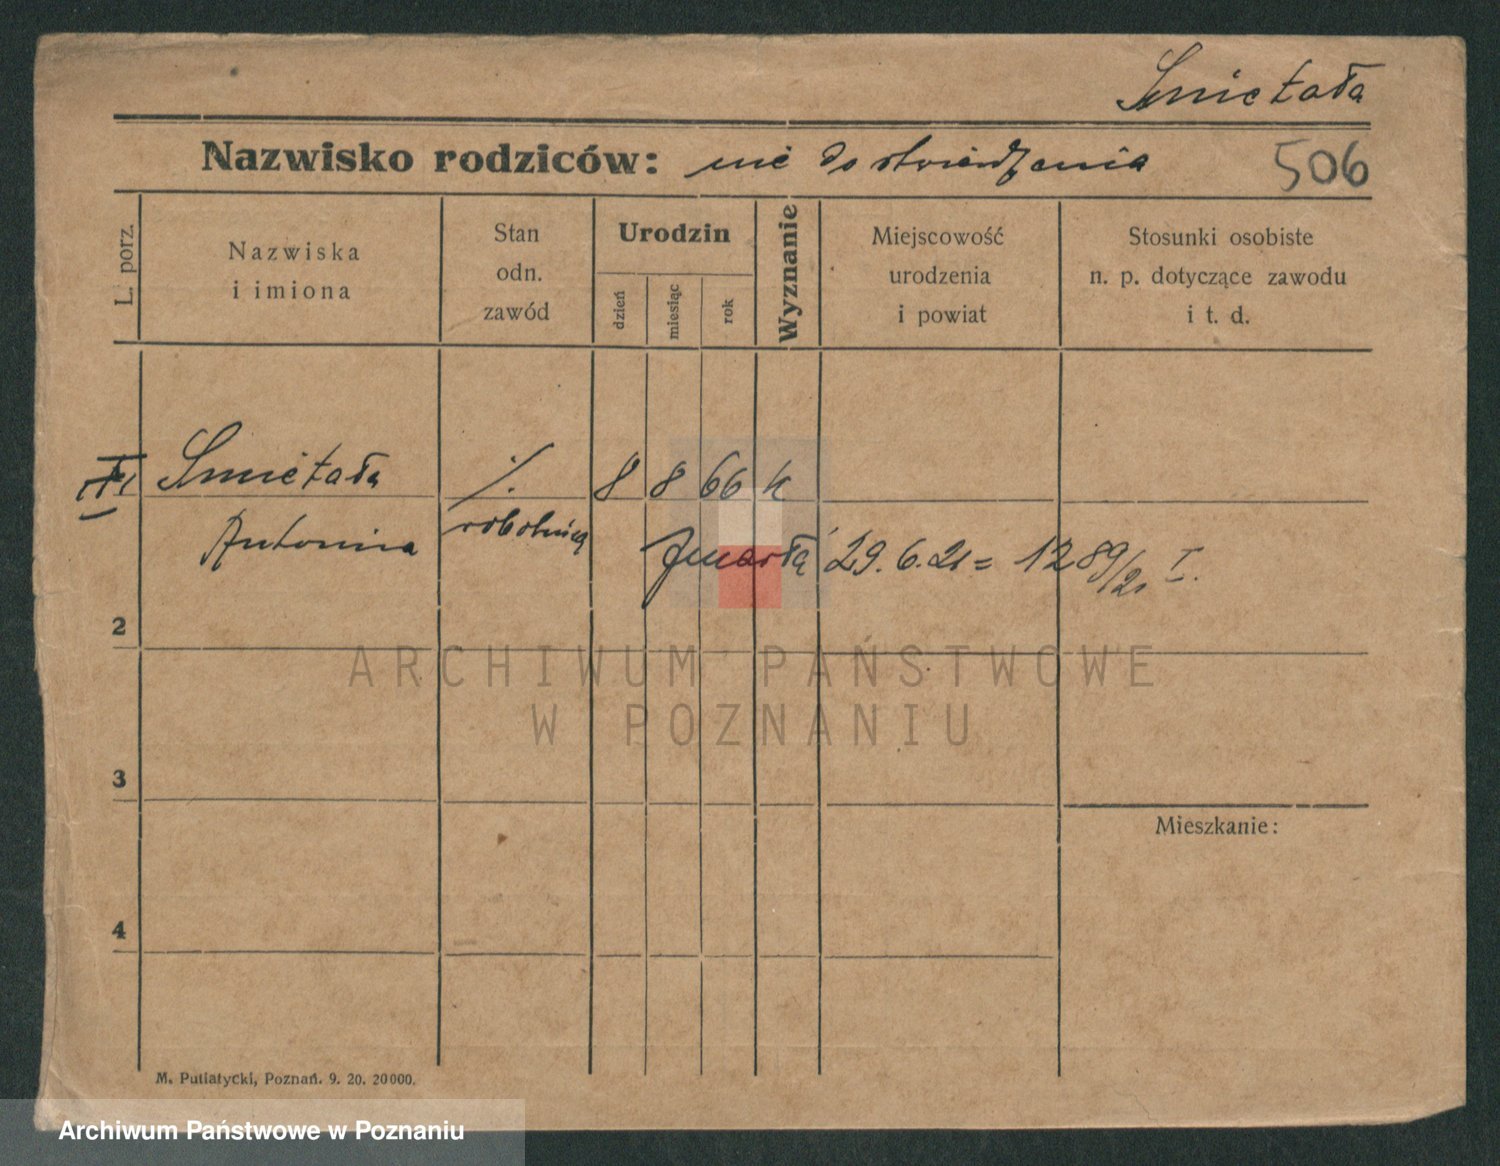 Śmietała
Nazwisko rodziców: nie do stwierdzenia 506
L. porz.
Nazwiska
i imiona
Stan
odn.
zawód
Urodzin
dzień
miesiąc
rok
Wyznanie
Miejscowość
urodzenia
i powiat
Stosunki osobiste
n. p. dotyczące zawodu
i t. d.
Śmietała ./. 8 8 66 k
Antonina robotnica zmarła 29.6.21 = 1289/21 I.
2
ARCHIWUM PAŃSTWOWE
W POZNANIU
3
Mieszkanie:
4
M. Putiatycki, Poznań. 9. 20. 20000.
Archiwum Państwowe w Poznaniu